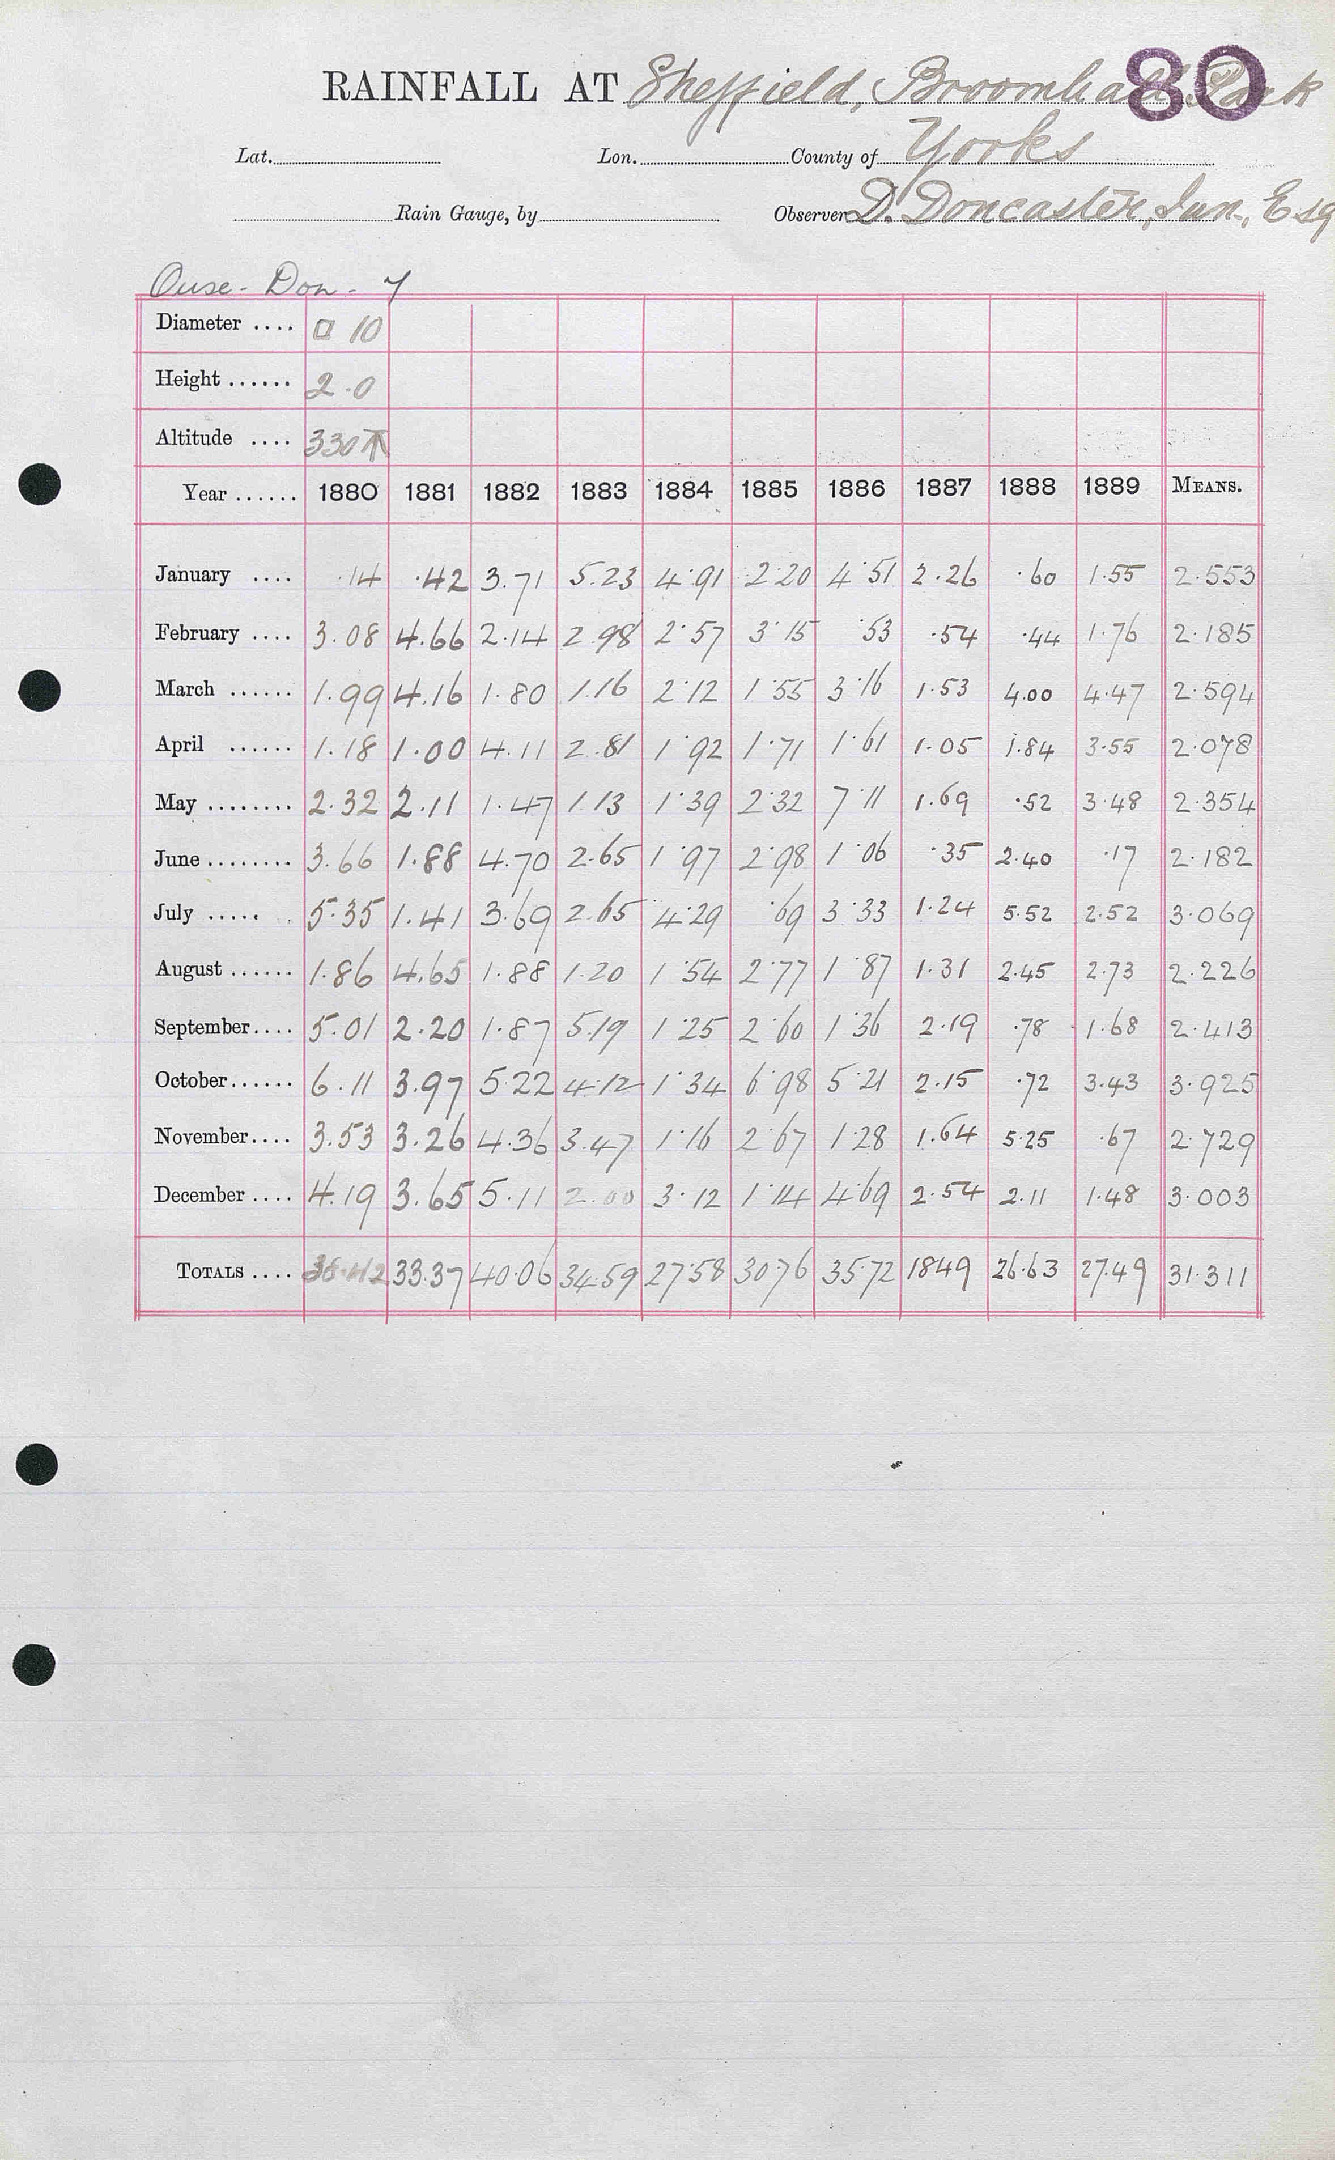 80
RAINFALL AT Sheffield, Broomhall Park
Lat. Lon. County of Yorks
Rain Gauge, by Observer D. Doncaster, Jun., Esq
Ouse - Don - 7
Diameter .... □ 10
Height ...... 2.0
Altitude .... 330
Year ...... 1880 1881 1882 1883 1884 1885 1886 1887 1888 1889 MEANS.
January .... .14 .42 3.71 5.23 4.91 2.20 4.51 2.26 .60 1.55 2.553
February .... 3.08 4.66 2.14 2.98 2.57 3.15 .53 .54 .44 1.76 2.185
March ...... 1.99 4.16 1.80 1.16 2.12 1.55 3.16 1.53 4.00 4.47 2.594
April ...... 1.18 1.00 4.11 2.81 1.92 1.71 1.61 1.05 1.84 3.55 2.078
May ........ 2.32 2.11 1.47 1.13 1.39 2.32 7.11 1.69 .52 3.48 2.354
June ........ 3.66 1.88 4.70 2.65 1.97 2.98 1.06 .35 2.40 .17 2.182
July ...... 5.35 1.41 3.69 2.65 4.29 .69 3.33 1.24 5.52 2.52 3.069
August ...... 1.86 4.65 1.88 1.20 1.54 2.77 1.87 1.31 2.45 2.73 2.226
September .... 5.01 2.20 1.87 5.19 1.25 2.60 1.36 2.19 .78 1.68 2.413
October ...... 6.11 3.97 5.22 4.12 1.34 6.98 5.21 2.15 .72 3.43 3.925
November .... 3.53 3.26 4.36 3.47 1.16 2.67 1.28 1.64 5.25 .67 2.729
December .... 4.19 3.65 5.11 2.00 3.12 1.14 4.69 2.54 2.11 1.48 3.003
TOTALS .... 33.37 40.06 34.59 27.58 30.76 35.72 18.49 26.63 27.49 31.311